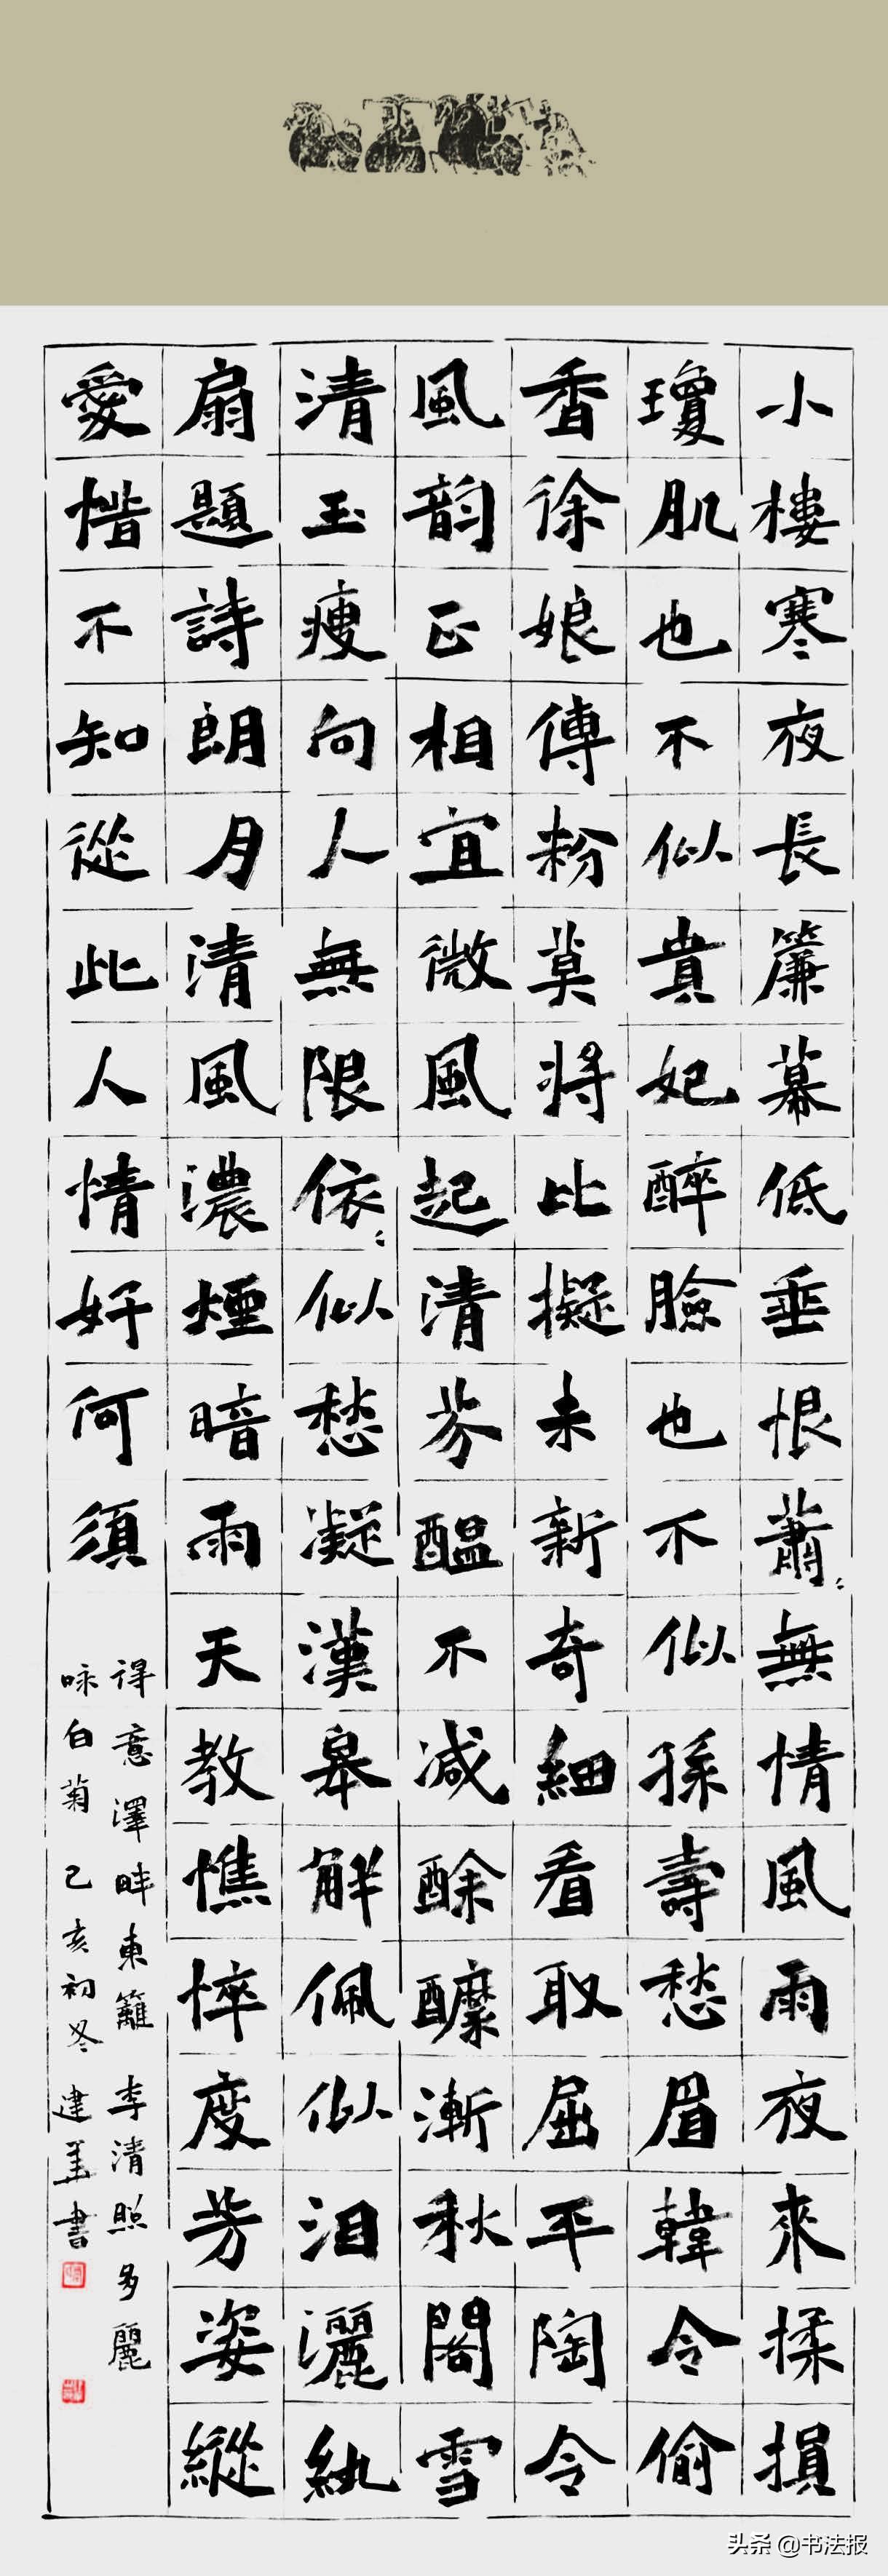 小樓寒夜長簾幕低垂恨蕭〻無情風雨夜來揉損
瓊肌也不似貴妃醉臉也不似孫壽愁眉韓令偷
香徐娘傅粉莫將比擬未新奇細看取屈平陶令
風韵正相宜微風起清芬醖不減酴醿漸秋閣雪
清玉瘦向人無限依〻似愁凝漢皋解佩似泪灑紈
扇題詩朗月清風濃煙暗雨天教憔悴度芳姿縱
愛惜不知從此人情好何須
得意澤畔東籬 李清照多麗
咏白菊 己亥初冬 建華書
头条 @书法报